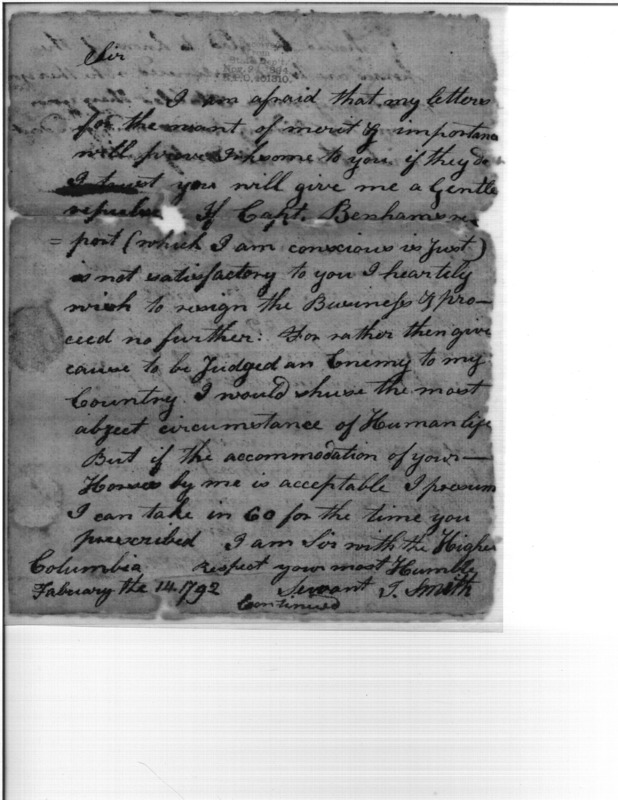 Sir
I am afraid that my letters
for the want of merit & importanc
will prove Irksome to you if they do
I trust you will give me a Gentle
repulse If Capt. Benhams re
= port (which I am conscious is Just)
is not satisfactory to you I heartily
wish to resign the Business & pro—
ceed no further: For rather then give
cause to be Judged an Enemy to my
Country I would chuse the most
abject circumstance of Human life
But if the accommodation of your—
Horses by me is acceptable I presum
I can take in 60 for the time you
prescribed I am Sir with the Highes
Columbia respect your most Humble
Fabuary the 14. 1792 Servant T. Smith
Continued